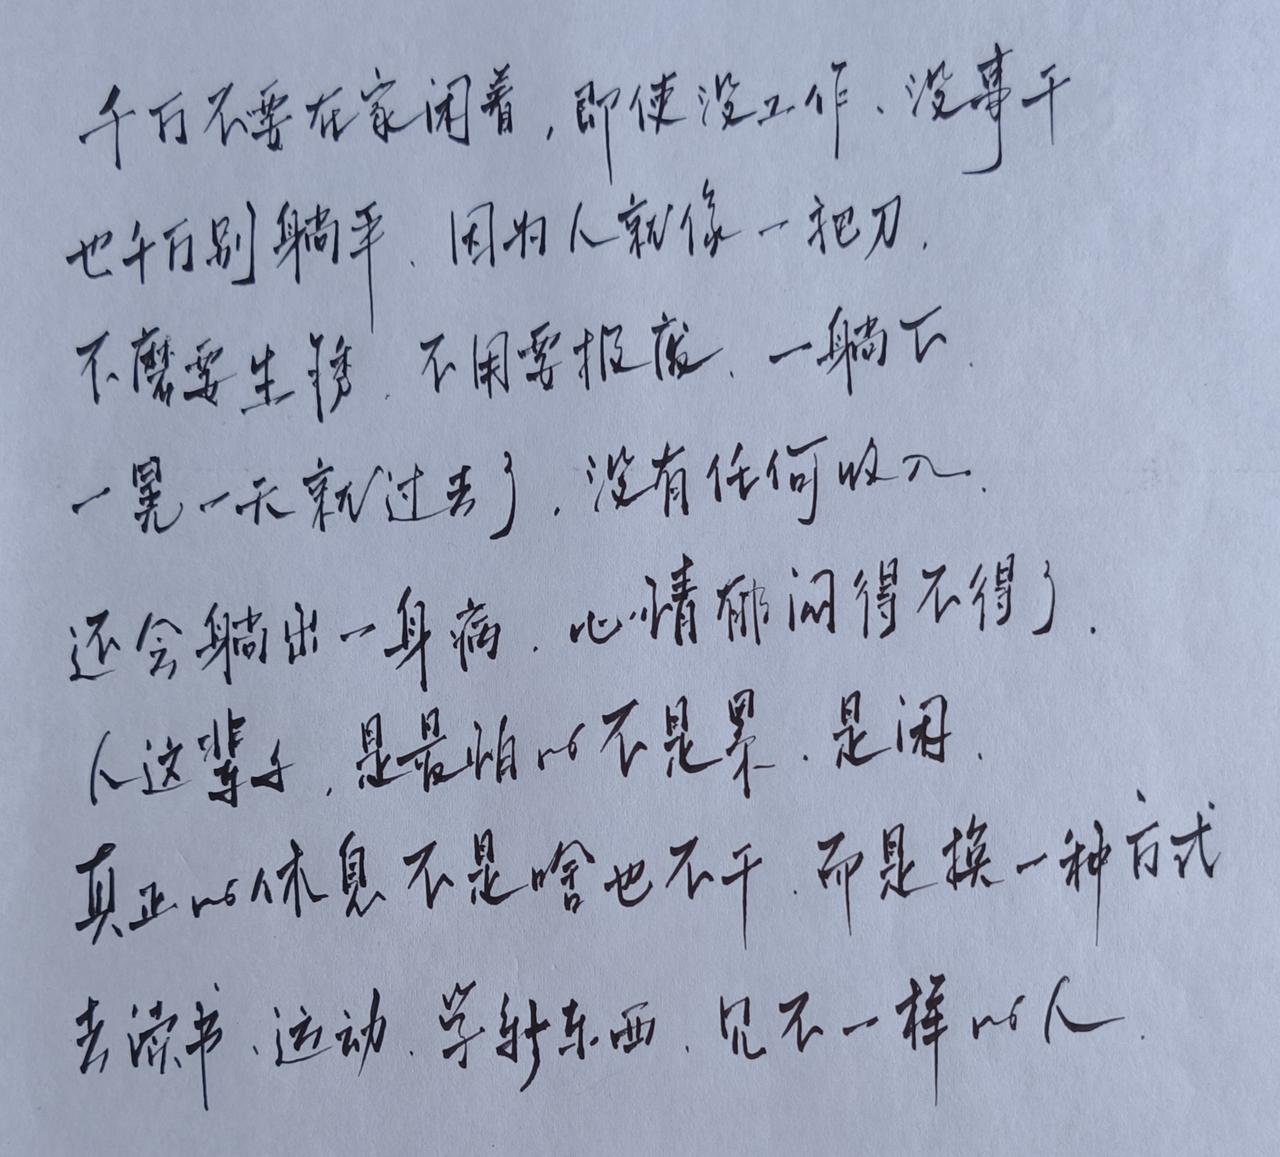 千万不要在家闲着,即使没工作、没事干
也千万别躺平、因为人就像一把刀,
不磨要生锈、不用要报废、一躺下、
一晃一天就过去了,没有任何收入、
还会躺出一身病、心情郁闷得不得了、
人这辈子,是最怕的不是累、是闲、
真正的休息不是啥也不干、而是换一种方式
去读书、运动、学新东西、见不一样的人、